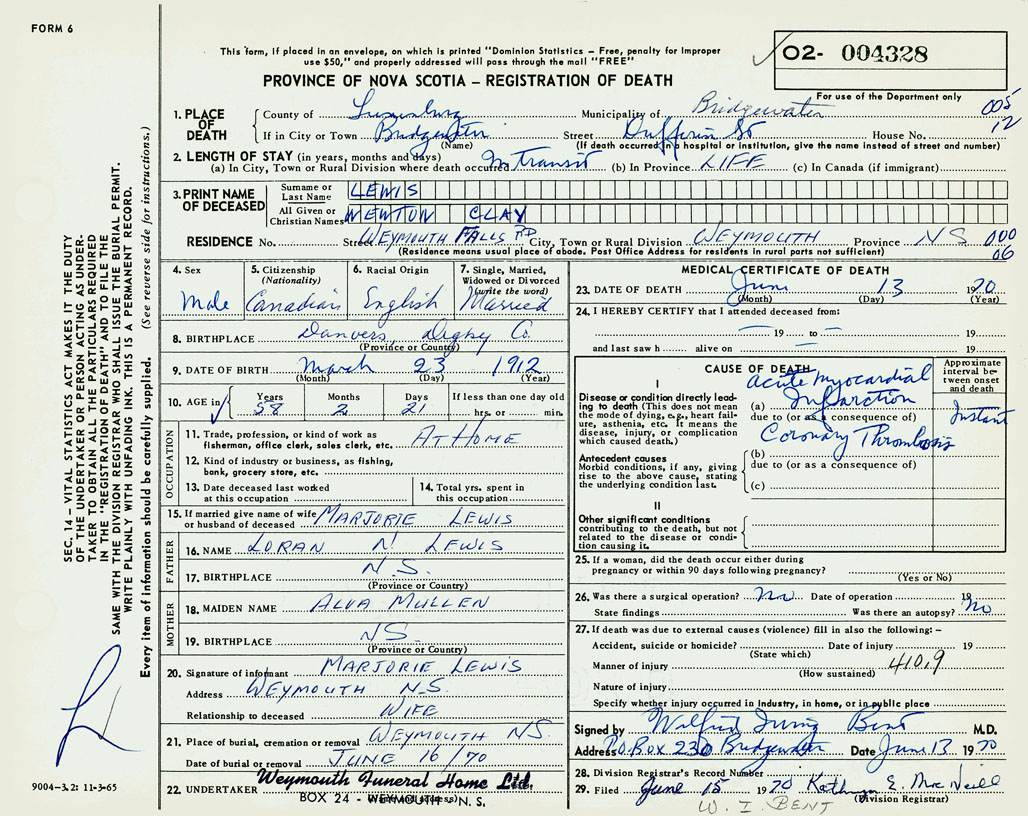 FORM 6
This form, if placed in an envelope, on which is printed "Dominion Statistics – Free, penalty for improper
use $50," and properly addressed will pass through the mail "FREE"
PROVINCE OF NOVA SCOTIA – REGISTRATION OF DEATH
02- 004328
For use of the Department only
005
12
1. PLACE OF DEATH
County of Lunenburg Municipality of Bridgewater
If in City or Town Bridgewater Street Dufferin St House No.
(Name) (If death occurred in a hospital or institution, give the name instead of street and number)
2. LENGTH OF STAY (in years, months and days)
(a) In City, Town or Rural Division where death occurred In transit (b) In Province LIFE (c) In Canada (if immigrant)
3. PRINT NAME OF DECEASED
Surname or Last Name LEWIS
All Given or Christian Names NEWTON CLAY
RESIDENCE No. Street WEYMOUTH FALLS RD City, Town or Rural Division WEYMOUTH Province NS 000
06
(Residence means usual place of abode. Post Office Address for residents in rural parts not sufficient)
4. Sex
Male
5. Citizenship
(Nationality)
Canadian
6. Racial Origin
English
7. Single, Married,
Widowed or Divorced
(write the word)
Married
8. BIRTHPLACE Danvers, Digby Co.
(Province or Country)
9. DATE OF BIRTH March 23 1912
(Month) (Day) (Year)
10. AGE in Years Months Days If less than one day old
58 2 21 hrs. or min.
OCCUPATION
11. Trade, profession, or kind of work as
fisherman, office clerk, sales clerk, etc. AT HOME
12. Kind of industry or business, as fishing,
bank, grocery store, etc.
13. Date deceased last worked
at this occupation
14. Total yrs. spent in
this occupation
15. If married give name of wife
or husband of deceased MARJORIE LEWIS
FATHER
16. NAME LORAN N. LEWIS
17. BIRTHPLACE N.S.
(Province or Country)
MOTHER
18. MAIDEN NAME ALVA MULLEN
19. BIRTHPLACE NS.
(Province or Country)
20. Signature of informant MARJORIE LEWIS
Address WEYMOUTH N.S.
Relationship to deceased WIFE
21. Place of burial, cremation or removal WEYMOUTH NS.
Date of burial or removal JUNE 16/70
22. UNDERTAKER Weymouth Funeral Home Ltd.
BOX 24 – WEYMOUTH – N.S.
MEDICAL CERTIFICATE OF DEATH
23. DATE OF DEATH June 13 1970
(Month) (Day) (Year)
24. I HEREBY CERTIFY that I attended deceased from:
— 19 to — 19
and last saw h alive on — 19
CAUSE OF DEATH
Approximate
interval be-
tween onset
and death
I
Disease or condition directly lead-
ing to death (This does not mean
the mode of dying, e.g., heart fail-
ure, asthenia, etc. It means the
disease, injury, or complication
which caused death.)
Acute Myocardial
(a) Infarction
due to (or as a consequence of)
Instant
Coronary Thrombosis
Antecedent causes
Morbid conditions, if any, giving
rise to the above cause, stating
the underlying condition last.
(b)
due to (or as a consequence of)
(c)
II
Other significant conditions
contributing to the death, but not
related to the disease or condi-
tion causing it.
25. If a woman, did the death occur either during
pregnancy or within 90 days following pregnancy?
(Yes or No)
26. Was there a surgical operation? No Date of operation 19
State findings Was there an autopsy? No
27. If death was due to external causes (violence) fill in also the following: –
Accident, suicide or homicide? Date of injury 19
(State which)
Manner of injury 410.9
(How sustained)
Nature of injury
Specify whether injury occurred in industry, in home, or in public place
Signed by Wilfred Irving Bent M.D.
Address P.O. Box 230 Bridgewater Date June 13 1970
28. Division Registrar's Record Number
29. Filed June 15 1970 Kathryn E. MacNeill
(Division Registrar)
W. I. BENT
SEC. 14 – VITAL STATISTICS ACT MAKES IT THE DUTY
OF THE UNDERTAKER OR PERSON ACTING AS UNDER-
TAKER TO OBTAIN ALL THE PARTICULARS REQUIRED
IN THE "REGISTRATION OF DEATH" AND TO FILE THE
SAME WITH THE DIVISION REGISTRAR WHO SHALL ISSUE THE BURIAL PERMIT.
WRITE PLAINLY WITH UNFADING INK. THIS IS A PERMANENT RECORD.
Every item of information should be carefully supplied. (See reverse side for instructions.)
L
9004-3.2: 11-3-65